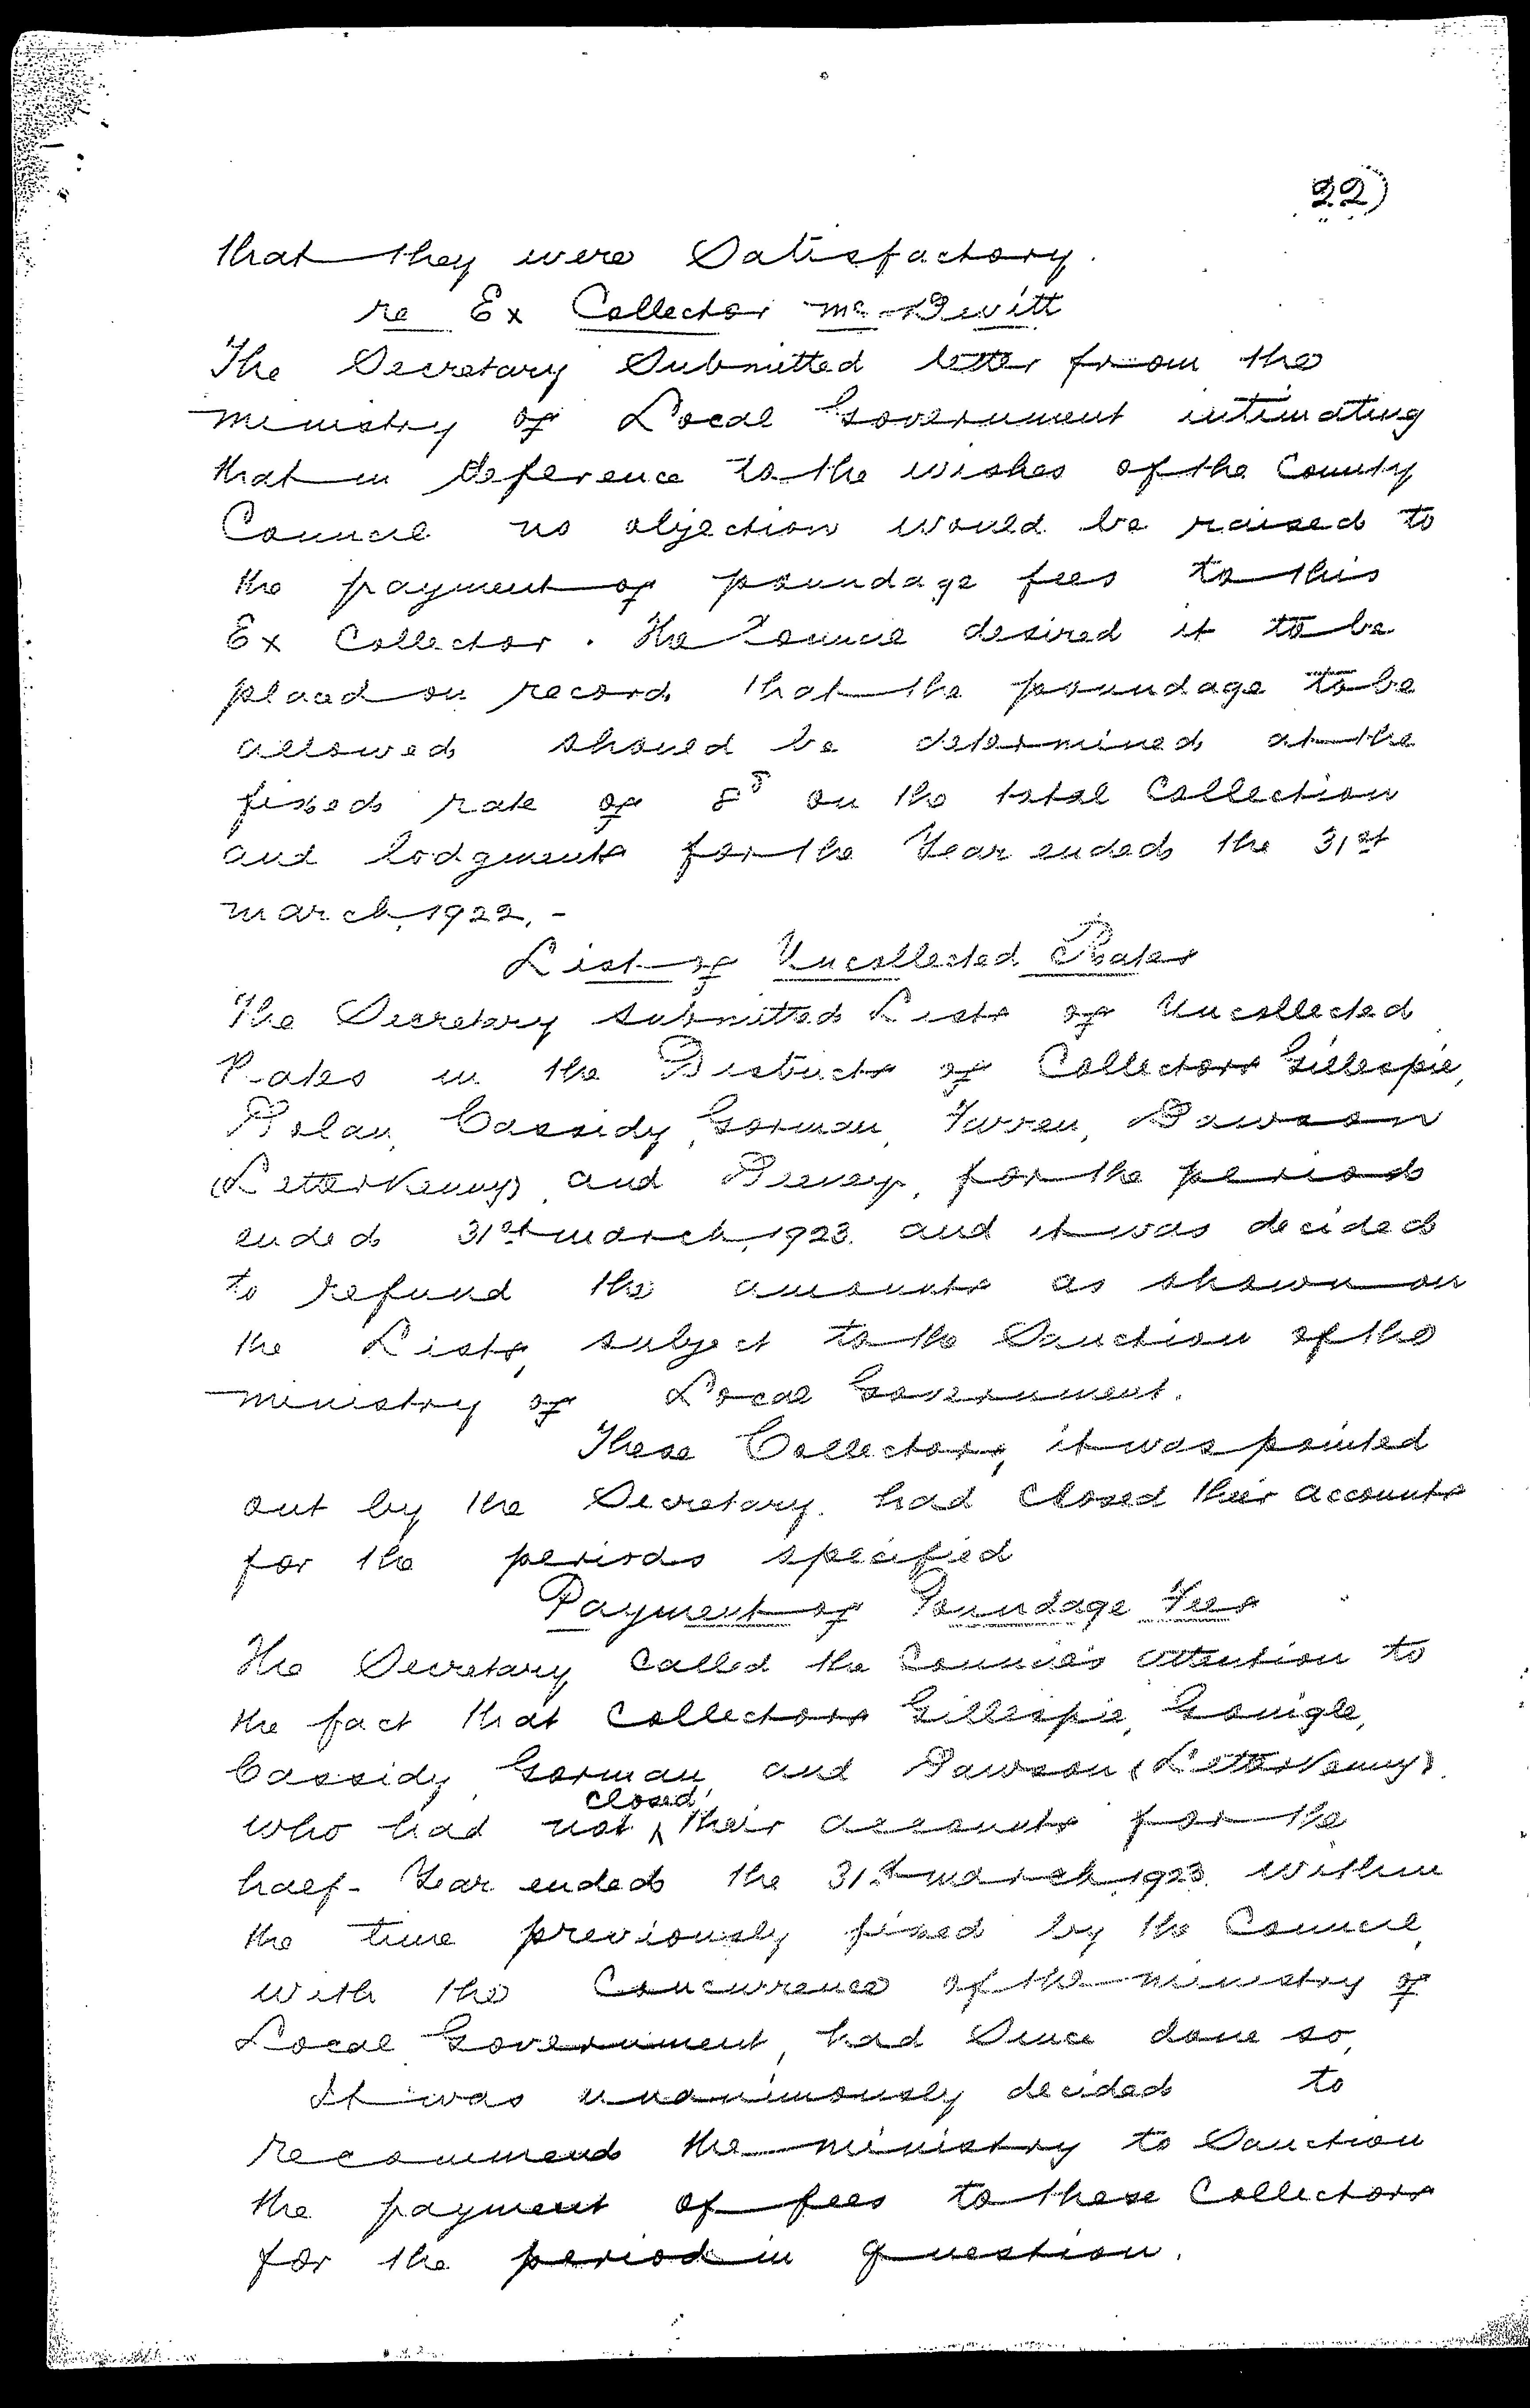 22)
that they were Satisfactory.
re Ex Collector McDevitt
The Secretary Submitted letter from the
ministry of Local Government intimating
that in deference to the wishes of the County
Council no objection would be raised to
the payment of poundage fees to this
Ex Collector. The Council desired it to be
placed on record that the poundage to be
allowed should be determined at the
fixed rate of 8d on the total Collection
and lodgments for the Year ended the 31st
march, 1922. -
List of Uncollected Rates
The Secretary submitted Lists of Uncollected
Rates in the Districts of Collectors Gillespie,
Dolan, Cassidy, Gorman, Farren, Dawson
(Letterkenny), and Deeney, for the period
ended 31st march, 1923. and it was decided
to refund the amounts as shown on
the Lists, subject to the Sanction of the
ministry of Local Government.
These Collectors, it was pointed
out by the Secretary, had Closed their accounts
for the periods specified
Payment of Poundage Fees
The Secretary Called the Council's attention to
the fact that Collectors Gillespie, Gonigle,
Cassidy, Gorman, and Dawson (Letterkenny).
who had not closed their accounts for the
half-Year ended the 31st march, 1923. within
the time previously fixed by the Council,
with the Concurrence of the ministry of
Local Government, had Since done so,
It was unanimously decided to
recommend the ministry to Sanction
the payment of fees to these Collectors
for the period in question.